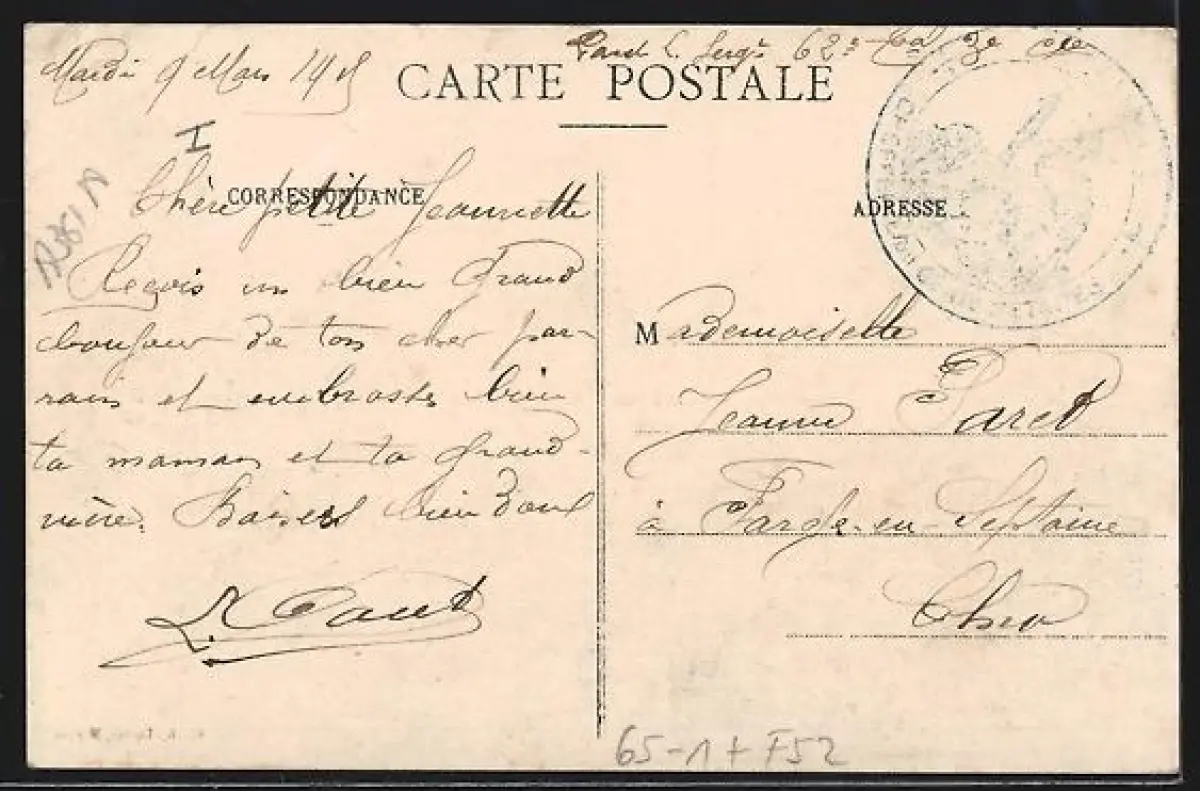 Mardi 9 Mars 1915
Sergt 62e 3e Cie
CARTE POSTALE
I
CORRESPONDANCE
ADRESSE
Chère petite Jeannette
Reçois un bien Grand
bonjour de ton cher par-
rain et embrasse bien
ta maman et ta Grand-
mère. Baisers bien Doux
Mademoiselle
Jeanne
à Farge-en-Septaine
Cher
65-1+F52